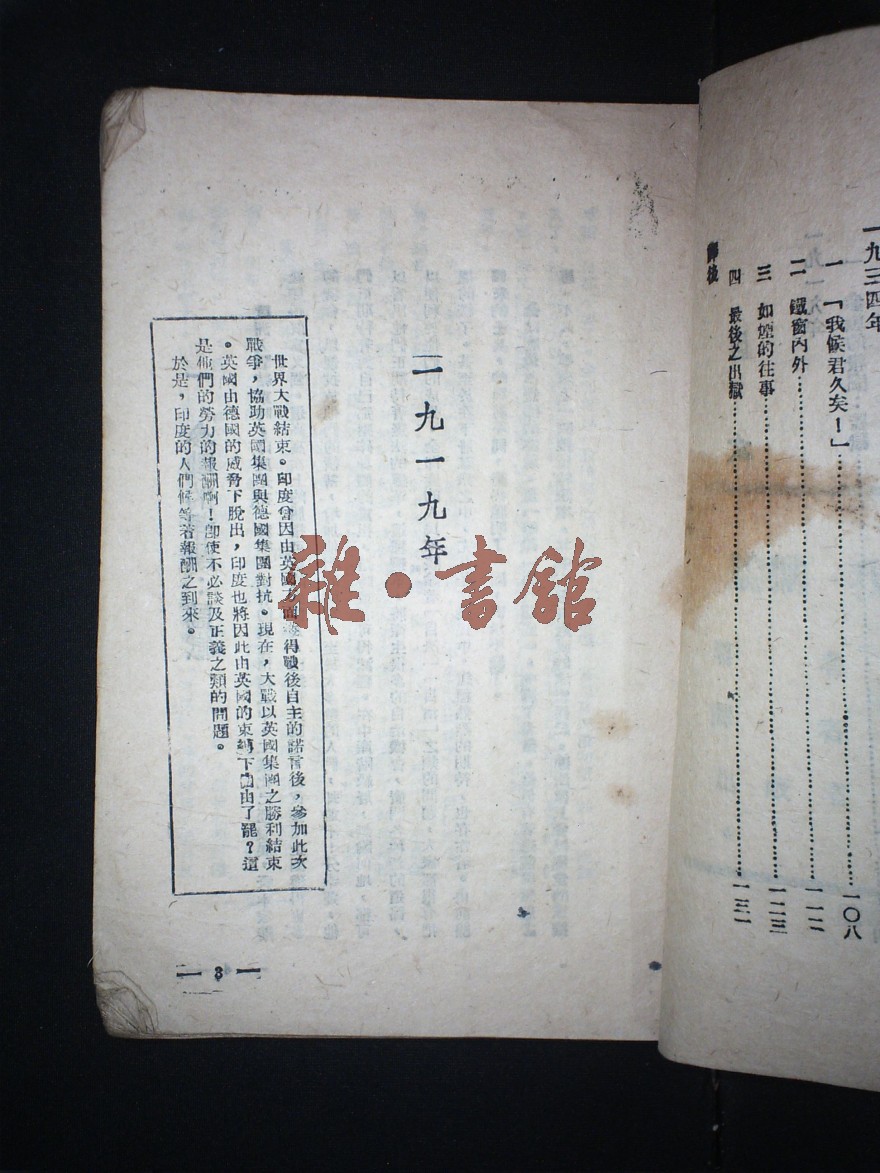 一九三四年
一 「我候君久矣！」……一〇八
二 鐵窗內外……一一二
三 如煙的往事……一二三
四 最後之出獄……一三一
後
一九一九年
世界大戰結束。印度曾因由英國方面獲得戰後自主的諾言後，參加此次
戰爭，協助英國集團與德國集團對抗。現在，大戰以英國集團之勝利結束
。英國由德國的威脅下脫出，印度也將因此由英國的束縛下自由了罷？這
是他們的勞力的報酬啊！卽使不必談及正義之類的問題。
於是，印度的人們候等著報酬之到來。
— 3 —
雜·書館